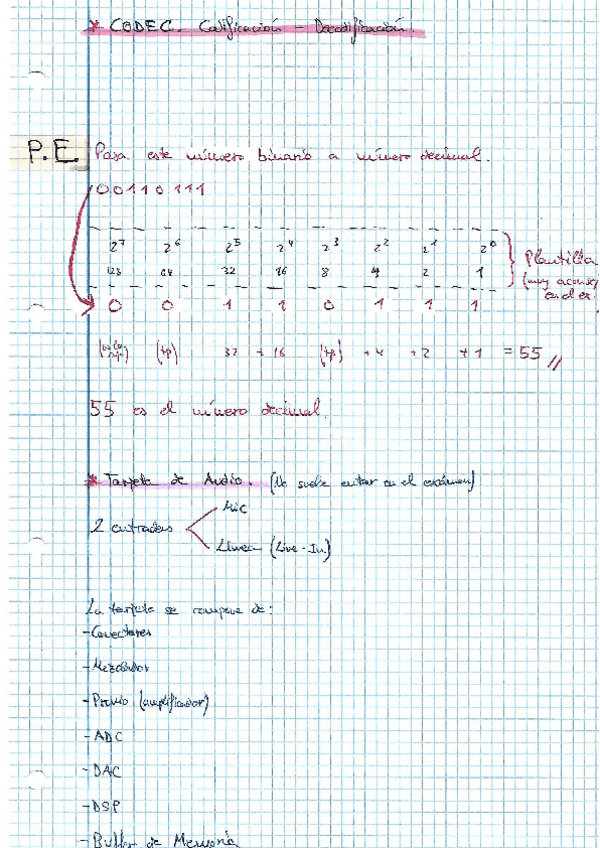 * CODEC. Codificación - Decodificación.
P.E. Pasa este número binario a número decimal.
00110111
2⁷ 2⁶ 2⁵ 2⁴ 2³ 2² 2¹ 2⁰
128 64 32 16 8 4 2 1
Plantilla
(muy aconsej
en el ex.
0 0 1 1 0 1 1 1
32 + 16 + 4 + 2 + 1 = 55 //
55 es el número decimal.
* Tarjeta de Audio. (No suele entrar en el exámen)
2 entradas
Mic
Línea (Live-In)
La tarjeta se compone de:
- Conectores
- Mezclador
- Previo (amplificador)
- ADC
- DAC
- DSP
- Buffer de Memoria